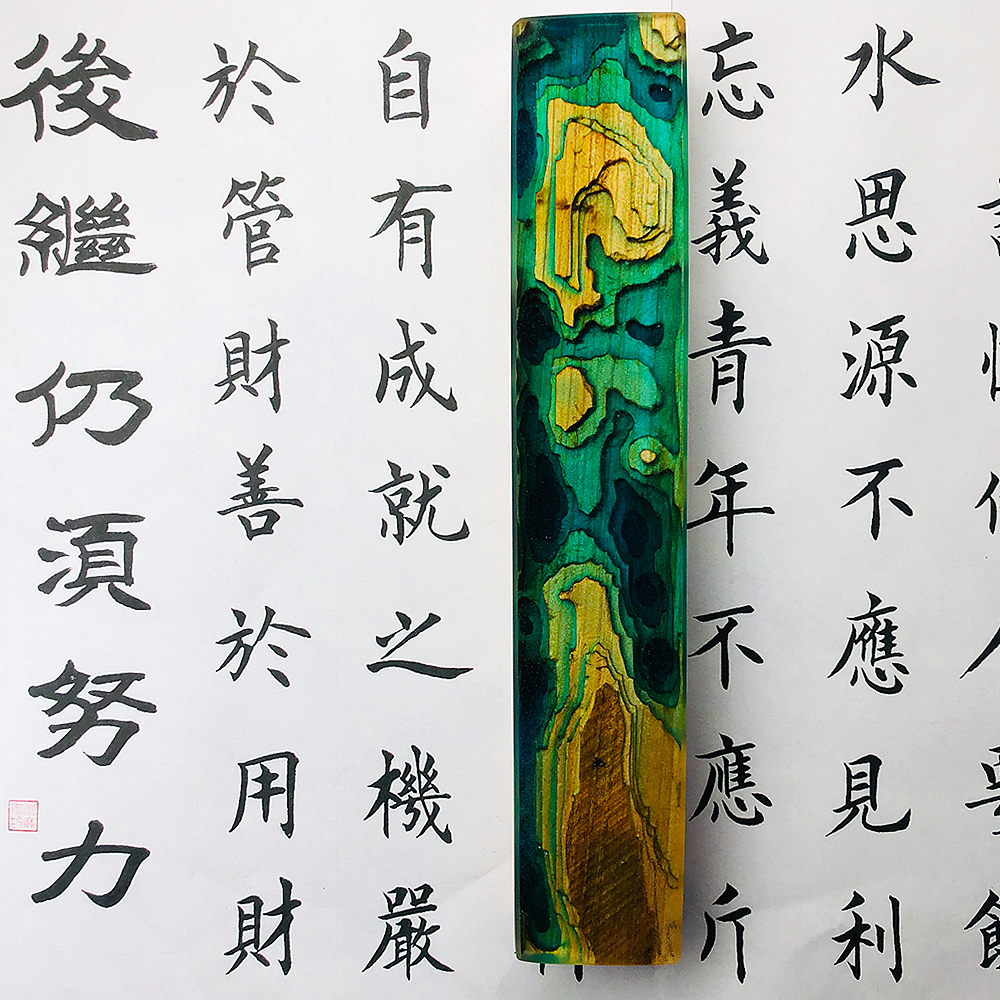 水思源不應見利
忘義青年不應斤
自有成就之機嚴
於管財善於用財
後繼仍須努力